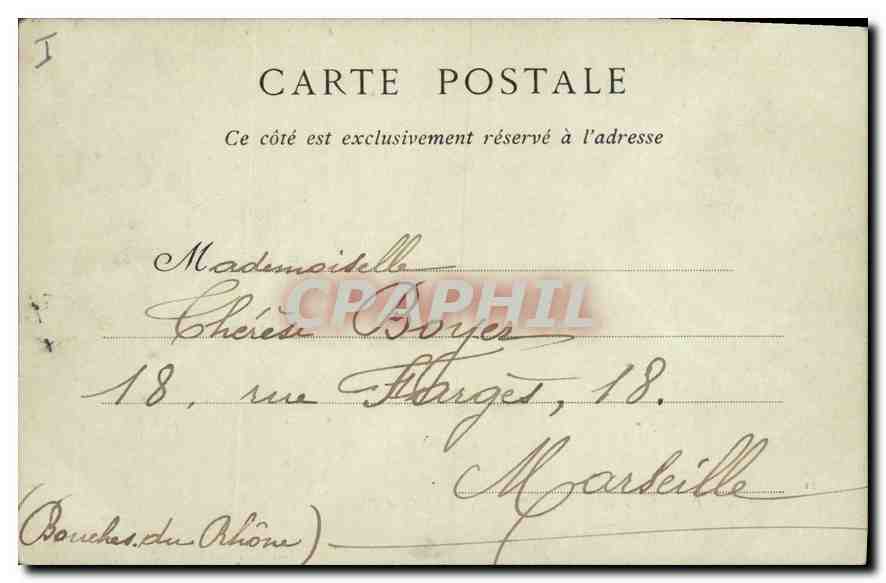 I
CARTE POSTALE
Ce côté est exclusivement réservé à l'adresse
Mademoiselle
CPAPHIL
Thérèse Boyer
18, rue Fargès, 18.
Marseille
(Bouches.du Rhône)